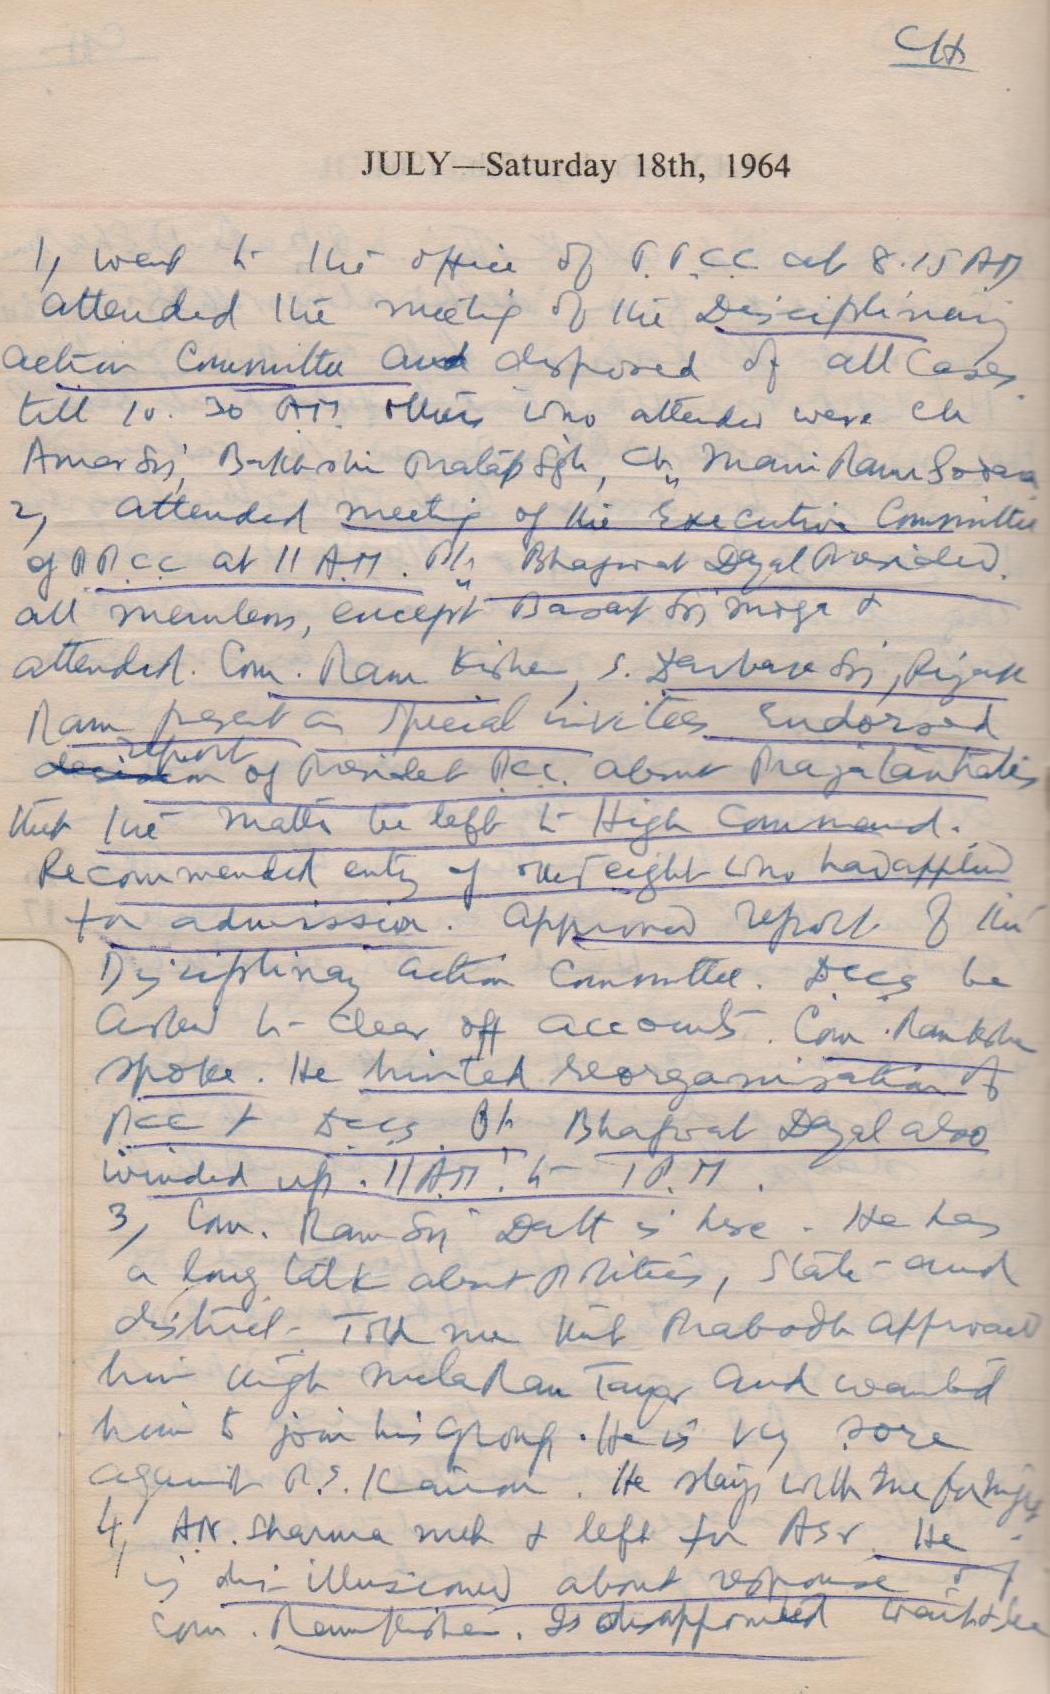 CH
JULY—Saturday 18th, 1964
1, went to the office of P.P.C.C at 8.15 AM
attended the meeting of the Disciplinary
action Committee and disposed of all Cases
till 10.30 A.M. others who attended were Ch
Amar Sgj, Bakhshi Pratap Sgh, Ch. Mani Ram
2, attended meeting of the Executive Committee
of P.P.C.C at 11 A.M. Pt. Bhagwat Dayal Presided.
all members, except Basant Sgj Moga &
attended. Com. Ram Kishen, S. Darbara Sgj, Rizak
Ram present as special invitees Endorsed
report of President PCC. about Prajatantrates
that the matter be left to High Command.
Recommended entry of other eight who had applied
for admission. approved report of the
Disciplinary action Committee. DCCs be
asked to clear off accounts. Com. Ramkishen
spoke. He hinted reorganisation of
PCC & DCCs. Pt. Bhagwat Dayal also
winded up. 11 A.M. to 1 P.M.
3, Com. Ram Sgj Dutt is here. He has
a long talk about Politics, State and
district. Told me that Prabodh approached
him through Mela Ram and wanted
him to join his group. He is very sore
against P.S. Kairon. He stays with me for night
4, A.N. Sharma met & left for Asr. He
is dis-illusioned about response of
Com. Ramkishen. Is disappointed wait & see